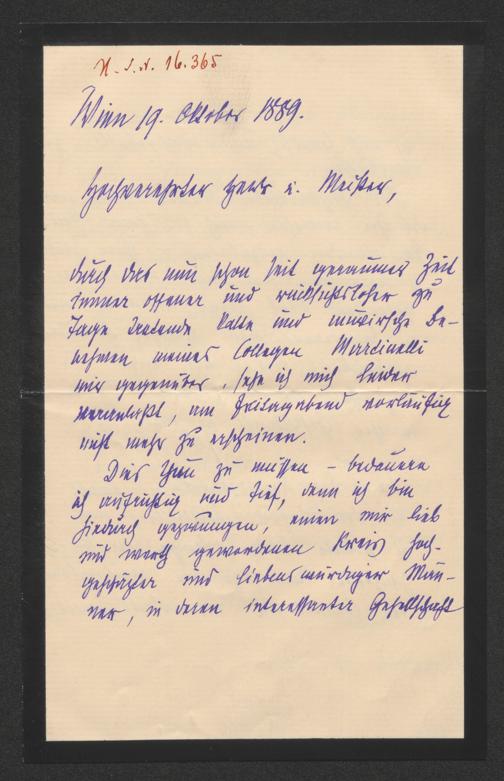 H.I.N. 16.365
Wien 19. Oktober 1889.
Hochverehrter Herr u. Meister,
durch das nun schon seit geraumer Zeit
immer offener und rücksichtsloser zu
Tage tretende kalte und mürrische Be-
nehmen meines Collegen Martinelli
mir gegenüber, sehe ich mich leider
veranlaßt, am Freitagabend vorläufig
nicht mehr zu erscheinen.
Dies thun zu müssen – bedauere
ich aufrichtig und tief, denn ich bin
hiedurch gezwungen, einen mir lieb
und werth gewordenen Kreis hoch-
geschätzter und liebenswürdiger Män-
ner, in deren interessanter Gesellschaft